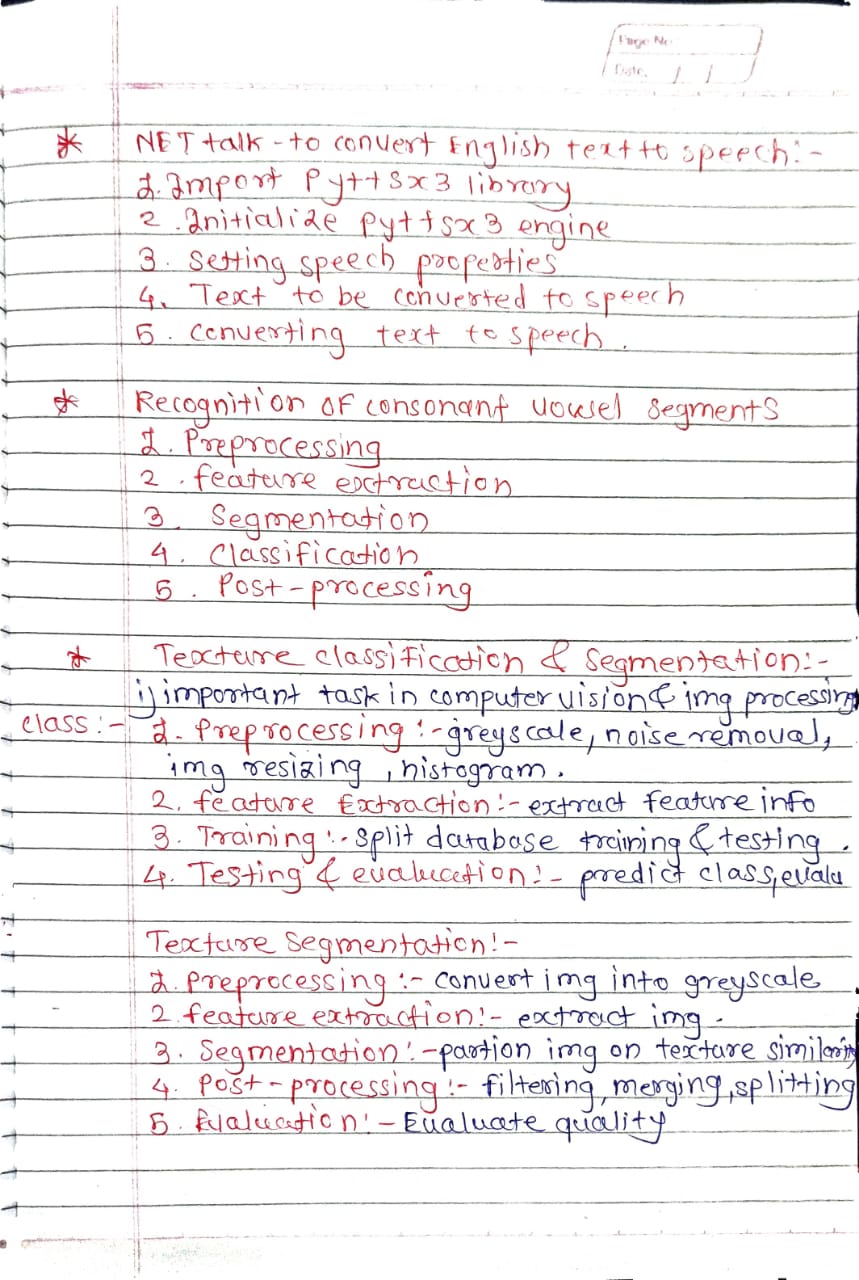 Page No.
Date. / /
* NET talk - to convert English text to speech:-
1. Import Pyttsx3 library
2. Initialize pyttsx3 engine
3. Setting speech properties
4. Text to be converted to speech
5. Converting text to speech.
* Recognition of consonant vowel segments
1. Preprocessing
2. feature extraction
3. Segmentation
4. Classification
5. Post-processing
* Texture classification & segmentation:-
i) important task in computer vision & img processing
class:- 1. Preprocessing :- greyscale, noise removal,
img resizing, histogram.
2. feature Extraction:- extract feature info
3. Training :- split database training & testing.
4. Testing & evaluation:- predict class, evalu
Texture Segmentation:-
1. Preprocessing :- convert img into greyscale
2. feature extraction:- extract img.
3. Segmentation:- partion img on texture similarity
4. Post-processing:- filtering, merging, splitting
5. Evaluation:- Evaluate quality